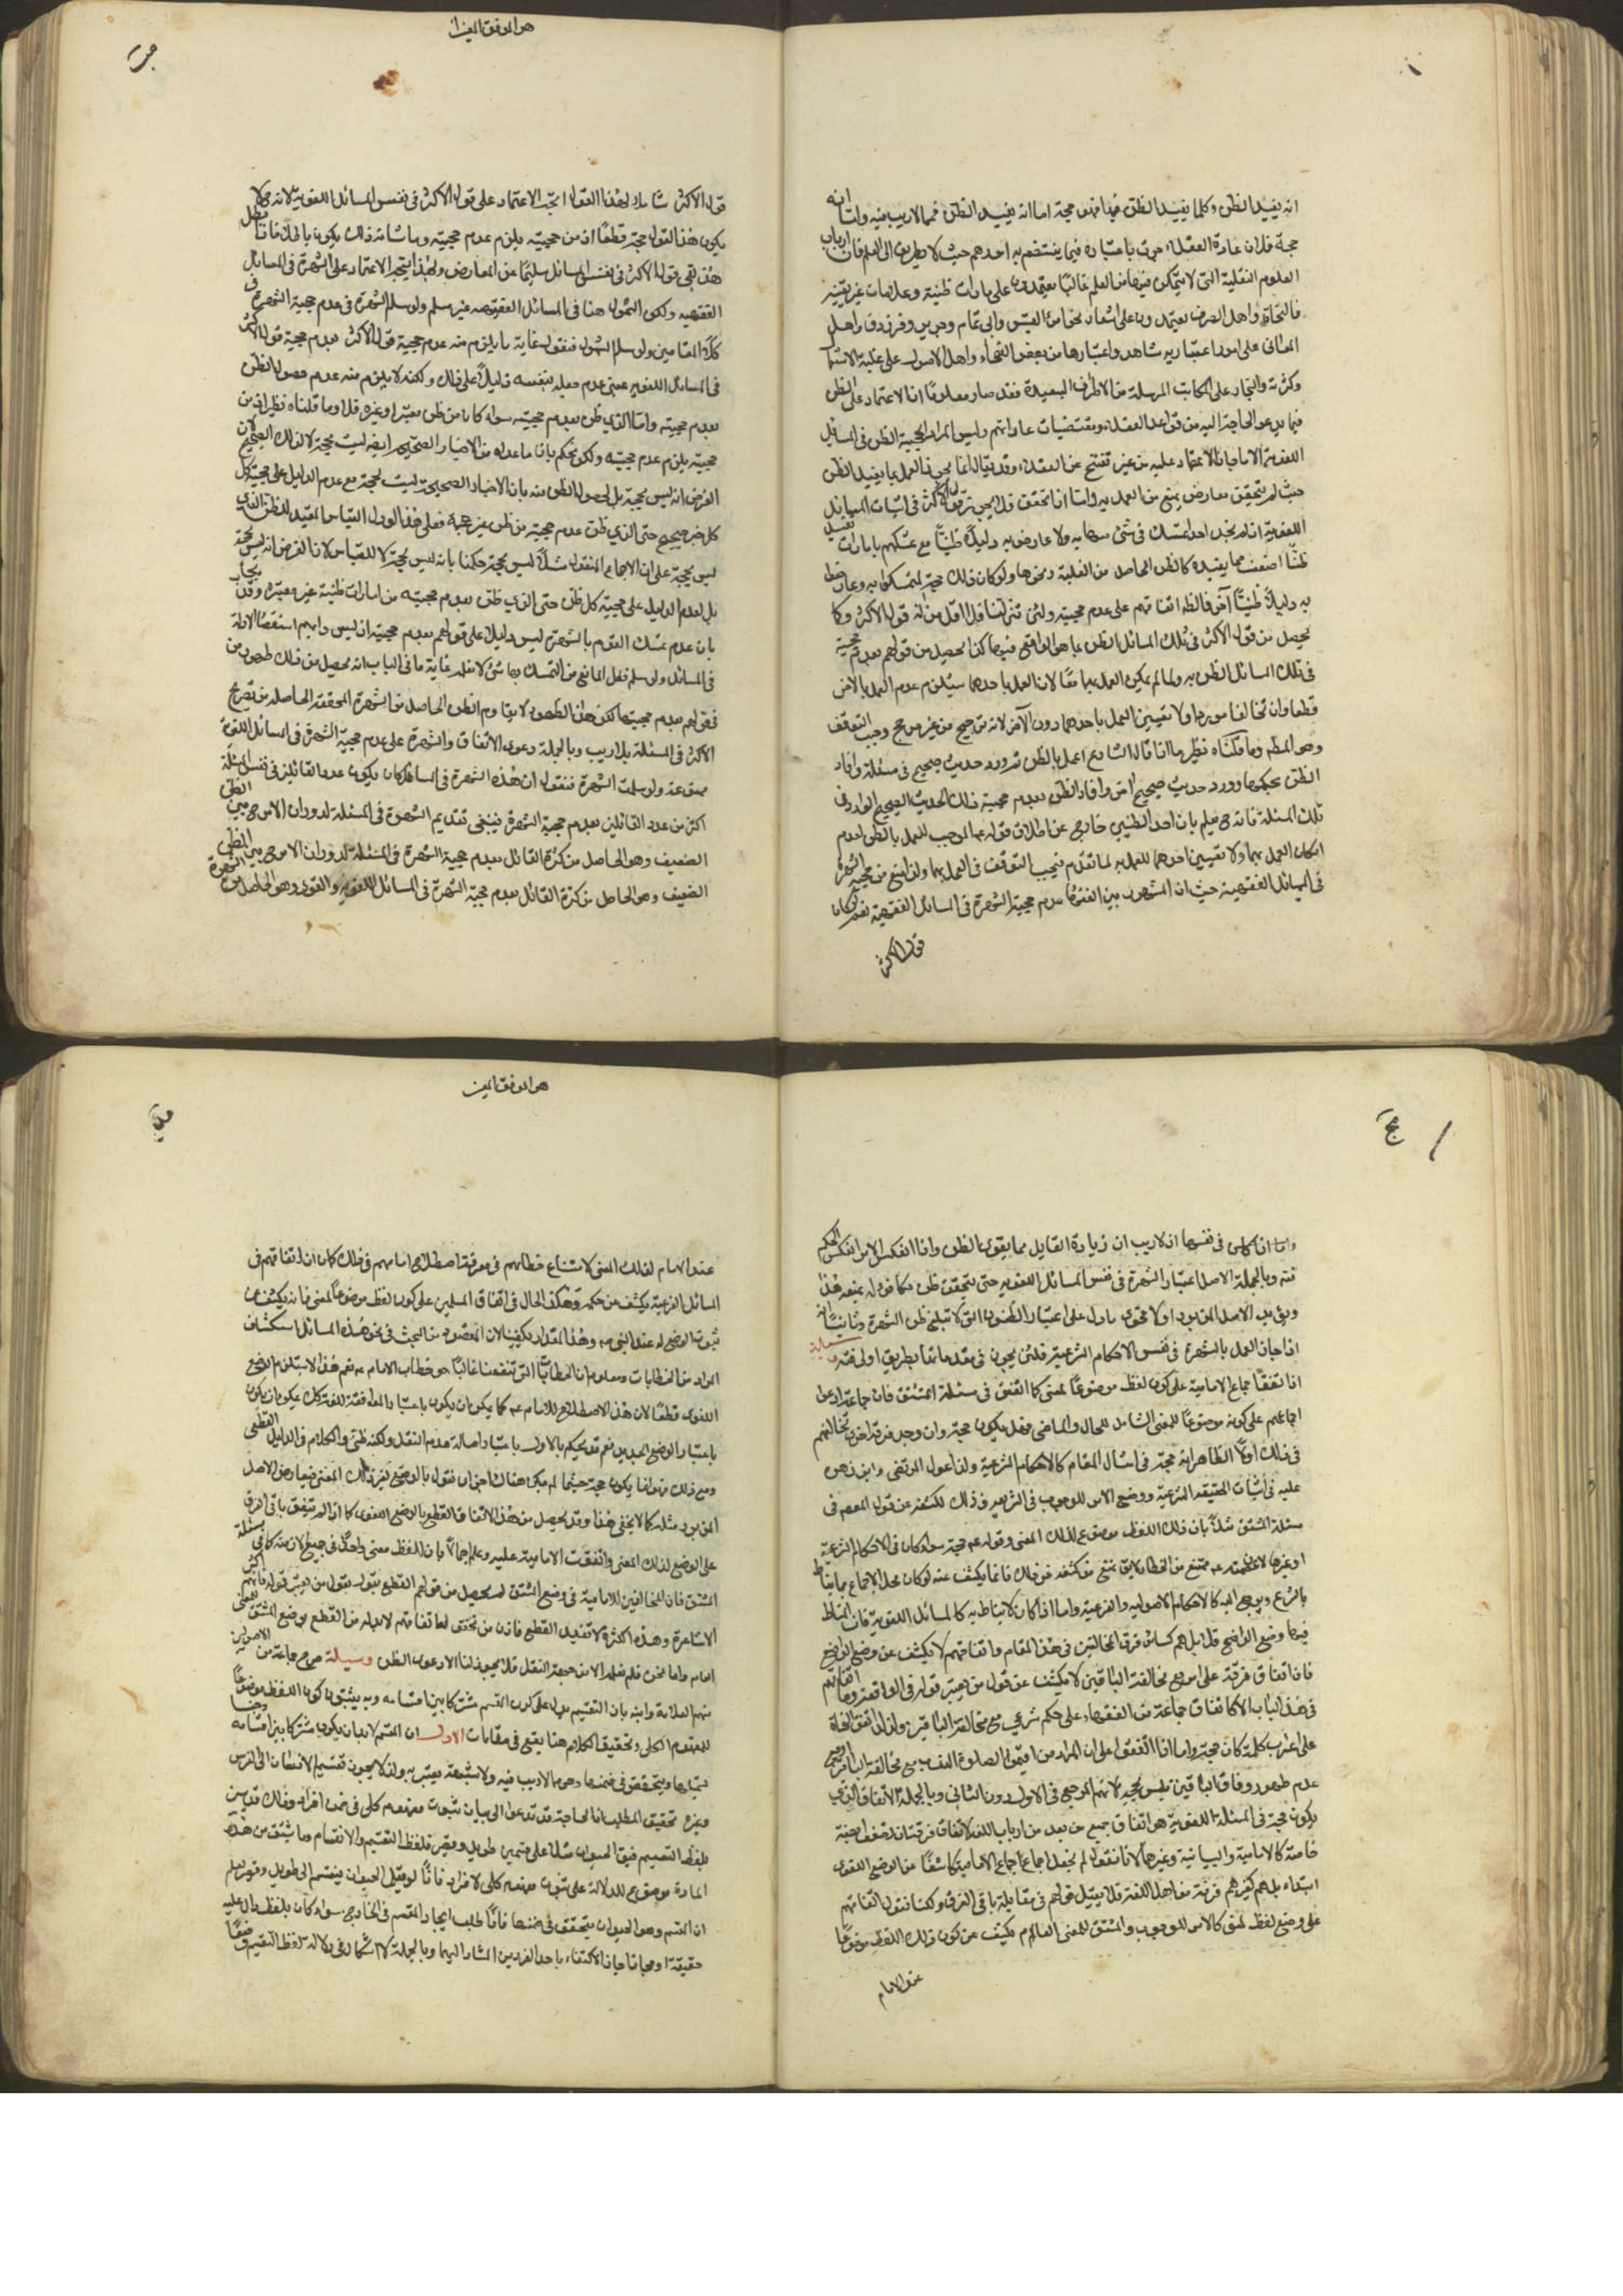 انه يفيد الظن وكلما يفيد الظن فيها فهو حجة اما انه يفيد الظن فمما لا ريب فيه واما انه
حجة فلان عادة العقلاء جرت باعتباره فيما يختص به احدهم حيث لا طريق الى العلم فان ارباب
العلوم النقلية التى لا يتمكن فيها من العلم غالبًا يعتمدون على امارات ظنية وعلامات غير يقينية
فالنحاة واهل الصرف يعتمدون على اشعار نحو امرء القيس وابى تمام وجرير وفرزدق واهل
المعانى على امور اعتبارية شاهد واعتبارها من بعض الفصحاء واهل الاصول على غلبة الاستعمال
وكثرته والتجار على المكاتيب المرسلة من الاطراف البعيدة فقد صار معلومًا ان الاعتماد على الظن
فيما يدعو الحاجة اليه من قواعد العقلاء ومقتضيات عاداتهم وليس المراد بحجية الظن فى المسائل
اللغوية الا ما جاز الاعتماد عليه من غير تفتح عن العقلاء وقد يقال انما يجوز العمل بما يفيد الظن
حيث لم يتحقق معارض يمنع من العمل به واما اذا تحقق فلا يجوز وقول الاكثر فى اثبات المسائل
اللغوية اذ لم نجد احدًا تمسك فى شئ منها به ولا عارض به دليلًا ظنيًا مع تمسكهم بامارات تفيد
ظنًا اضعف مما يفيده كالظن الحاصل من الغلبة ونحوها ولو كان ذلك حجة لتمسكوا به وعارضوا
به دليلًا ظنيًا آخر فالظاهر اتفاقهم على عدم حجيته ولئن تنزلنا فلا اقل من انه قول الاكثر وكما
يحصل من قول الاكثر فى تلك المسائل الظن بما هو الواقع فيها كذا يحصل من قولهم بعدم حجية
فى تلك المسائل الظن به ولما لم يمكن العمل بهما معًا لان العمل باحدهما يستلزم عدم العمل بالاخر
قطعا وان تخالفا موردا ولا تعيين العمل باحدهما دون الآخر لانه ترجيح من غير مرجح وجب التوقف
وهو المطلوب وما قلناه نظير ما اذا قال الشارع اعمل بالظن ثم ورد حديث صحيح فى مسئلة وافاد
الظن بحكمها وورد حديث صحيح اخر وافاد الظن بعدم حجية ذلك الحديث الصحيح الوارد فى
تلك المسئلة فانه ح فيلم بان احد الظنين خارج عن اطلاق قوله الموجب للعمل بالظن لعدم
امكان العمل بهما ولا تعيين احدهما للعمل به لما تقدم فيجب التوقف فى العمل بهما ولذا منع من حجية الشهرة
فى المسائل الفقهية حيث ان المشهور بين الفقهاء عدم حجية الشهرة فى المسائل الفقهية نعم لو كان
قول الاكثر
هو الموفق المعين
قول الاكثر شاملا لهذا القول اتجه الاعتماد على قول الاكثر فى نفس المسائل اللغوية لانه ح لا
يكون هذا القول حجة قطعًا اذ من حجيته يلزم عدم حجيته وما شانه ذلك يكون باطلًا فاذا بطل
هذا بقى قول الاكثر فى نفس المسائل سليمًا عن المعارض ولهذا يتجه الاعتماد على الشهرة فى المسائل
الفقهيه ولكن الشمول هنا فى المسائل الفقهيه غير مسلم ولو سلم الشهرة فى عدم حجية الشهرة فى
كلا المقامين ولو سلم الشمول فنقول غاية ما يلزم منه عدم حجية قول الاكثر بعدم حجية قول الاكثر
فى المسائل اللغويه بمعنى عدم جعله بنفسه دليلًا على ذلك ولكنه لا يلزم منه عدم حصول الظن
بعدم حجيته واما الذي ظن بعدم حجيته سواء كان من ظن معتبر او غيره فلا وما قلناه نظير اذ من
حجيته يلزم عدم حجيته ولكن نحكم بان ما عداه من الاخبار الصحيحه ايضه ليست بحجة لا لذلك لان الصحيح
الفرض انه ليس بحجة بل لحصول الظن منه بان الاخبار الصحيحة ليست بحجة مع عدم الدليل على حجية كل
كل خبر صحيح حتى الذي ظن عدم حجيته من ظن غير حجة فعلى هذا لو دل القياس المفيد للظن الذى
ليس بحجة على ان الاجماع المنقول مثلًا ليس بحجة حكمنا بانه ليس بحجة لا للقياس لان الفرض انه ليس بحجة
بل لعدم الدليل على حجية كل ظن حتى الذي ظن بعدم حجيته من امارات ظنية غير معتبرة وقد يجاب
بان عدم تمسك القوم بالشهرة ليس دليلًا على قولهم بعدم حجيته اذ ليس دابهم استقصاء الادلة
فى المسائل ولو سلم فعل المانع من التمسك بها شئ لا نعلمه غاية ما فى الباب انه يحصل من ذلك ظهور من
فى قولهم بعدم حجيتها لكن هذا الظهور لا يقاوم الظن الحاصل من الشهرة المحققة الحاصله من تصريح
الاكثر فى المسئلة بلا ريب وبالجملة دعوى الاتفاق والشهرة على عدم حجية الشهرة فى المسائل اللغوية
ممنوعة ولو سلمت الشهرة فنقول ان هذه الشهرة فى المسائل كان يكون عدد القائلين فى نفس المسئلة
اكثر من عدد القائلين بعدم حجية الشهرة فينبغى تقديم الشهرة فى المسئلة لدوران الامر ح بين الظن
الضعيف وهو الحاصل من كثرة القائل بعدم حجية الشهرة فى المسئلة لدوران الامر ح بين الظن
الضعيف وهو الحاصل من كثرة القائل بعدم حجية الشهرة فى المسائل اللغويه والقوى وهو الحاصل من الشهرة
واما اذا كان فى نفسها اذ لا ريب ان زيادة القائل مما يقوى الظن واذا انعكس الامر انعكس الحكم
فتنه وبالجملة الاصل اعتبار الشهرة فى نفس المسائل اللغويه حتى يتحقق ظن مكافؤ له يمنعه هذا
ويؤيد الاصل المزبور اولا فحوى ما دل على اعتبار الظنون التى لا تبلغ ظن الشهرة وثانيًا انه
اذا جاز العمل بالشهرة فى نفس الاحكام الشرعية فلئن يجوز فى مقدماتها بطريق اولى فتنه وسيلة
اذا اتفق اجماع الامامية على كون لفظ موضوعًا لمعنى كما اتفق فى مسئلة المشتق فان جماعة ادعوا
اجماعهم على كونه موضوعًا للمعنى الشامل للحال والماضى فهل يكون حجة وان وجد فرقة اخرى تخالفهم
فى ذلك اولًا الظاهر انه حجة فى امثال المقام كالاحكام الشرعية ولذا عول المرتضى وابن زهره
عليه فى اثبات الحقيقه الشرعية ووضع الامر للوجوب فى الشريعه وذلك لكشفه عن قول المعصوم فى
مسئلة المشتق مثلًا بان ذلك اللفظ موضوع لذلك المعنى وقوله ع حجة سواء كان فى الاحكام الشرعية
او غيرها
بالشرع ويرجع اليه كالاحكام الاصوليه والفرعية واما اذا كان لا يناط به كالمسائل اللغوية فان المناط
فيها وضع الواضع فلا بل هم كسائر فرق المخالفين فى هذا المقام واتفاقهم لا يكشف عن وضع الواضع
فان اتفاق فرقة على امر مع مخالفة الباقين لا يكشف عن قول من يعتبر قوله فى الواقعة وما اتفاقهم
فى هذا الباب الا كاتفاق جماعة من الفقهاء على حكم شرعي مع مخالفة الباقين ولذا لو اتفق النحاة
على اعراب كلمة كان حجة واما اذا اتفقوا على ان المراد من اقيموا الصلوة الندب مع مخالفة الباقر او مع
عدم ظهور وفاق الباقين فليس بحجه لانهم المرجع فى الاول دون الثانى وبالجملة الاتفاق الذي
يكون حجة فى المسئلة اللغوية هو اتفاق جميع من يعد من ارباب اللغه لا اتفاق فرقة
خاصة كالامامية والبيانية وغيرها لانا نقول لم نجعل اجماع الامامية كاشفًا عن الوضع اللغوى
ابتداء بل هم كغيرهم فرقة من اهل اللغة فلا يقبل قولهم فى مقابلة باقى الفرق ولكنا نقول اتفاقهم
على وضع لفظ لمعنى كالامر للوجوب والمشتق للمعنى العام يكشف عن كون ذلك اللفظ موضوعًا
عند الامام
هو الموفق المعين
عند الامام لذلك المعنى لاتباع خطابهم فى معرفة اصطلاح امامهم فى ذلك كما ان اتفاقهم فى
المسائل الفرعية يكشف عن حكمه وهكذا الحال فى اتفاق المسلمين على كون لفظ موضوعًا لمعنى فانه يكشف عن
ثبوت الوضع له عند النبى ص وهذا المقدار يكفينا لان المقصود من البحث فى نحو هذه المسائل استكشاف
المراد من الخطابات ومعلوم ان الخطابات التى تنفعنا غالبًا هو خطاب الامام ع نعم هذا لا يستلزم الوضع
اللغوى قطعًا لان هذا الاصطلاح للامام ع كما يمكن ان يكون باعتبار الموافقة للغة كك يمكن ان يكون
باعتبار الوضع الجديد نعم قد يحكم بالاول باعتبار اصالة عدم النقل ولكنه ظنى والكلام فى الدليل القطعى
ومع ذلك فهو انما يكون حجة حيثما لم يكن هناك
المزبور مثله كما لا يخفى هذا وقد يحصل من هذا الاتفاق القطع بالوضع اللغوى كما اذا لم يتفق باقى الفرق
على الوضع لذلك المعنى واتفقت الامامية عليه وعلم اجمالًا بان للفظ معنى واحدًا فى جميع الازمنه كما فى مسئلة
المشتق فان المخالفين للامامية فى وضع المشتق لم يحصل من قولهم القطع بقول من يعتبر قوله فانهم اكثر
الاشاعرة وهذه الكثرة لا تفيد القطع
امام واما نحن فلم نعلم الا من جهة النقل فلا يجوز لنا الا دعوى الظن وسيلة صرح جماعة من الاصوليين
منهم العلامة وابنه بان التقسيم يدل على كون المقسم مشتركا بين اقسامه وبه يثبتون كون اللفظ موضوعًا
للمفهوم الكلى وتحقيق الكلام هنا يقع فى مقامات الاول ان المقسم لابد ان يكون مشتركا بين اقسامه
بتمامها ويتحقق فى ضمنها وهو مما لا ريب فيه ولا شبهة يعتريه ولذا لا يجوز تقسيم الانسان الى الفرس
وغيره تحقيق المطلب ان الحاجة قد تدعوا الى بيان ثبوت مفهوم كلى فى ضمن افراده وذلك قد يبين
بلفظ التقسيم فيق الحيوان مثلًا على قسمين طويل وقصير فلفظ التقسيم والانقسام وما يشتق من هذه
المادة موضوع للدلالة على ثبوت مفهوم كلى لافراده فاذًا لو قيل الحيوان ينقسم الى طويل وقصير علم
ان المقسم وهو الحيوان يتحقق فى ضمنها فاذًا طلب ايجاد المقسم فى الخارج سواء كان بلفظ دال عليه
حقيقة او مجازا جاز الاكتفاء باحد الفردين المشار اليهما وبالجملة لا اشكال فى دلالة لفظ التقسيم وضعًا